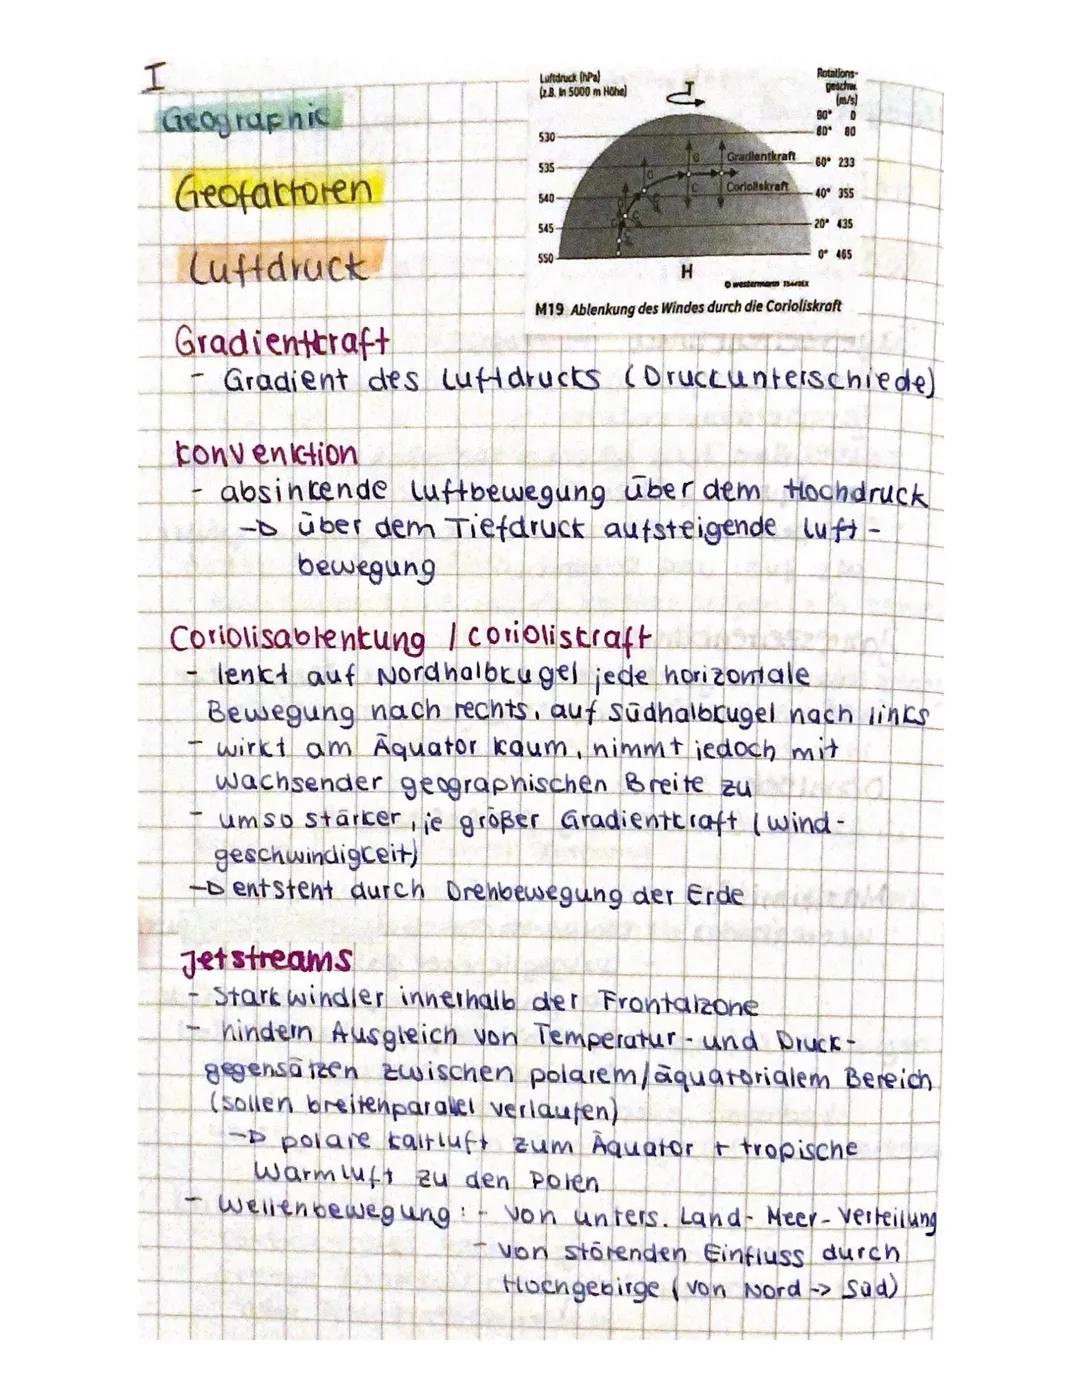 I
Geographie
Geofaktoren
Luftdruck
Luftdruck (hPa)
(z.B. in 5000 m Höhe)
T
Rotations-
geschw.
(m/s)
90° 0
80° 80
530
535
60° 233
G
G
Gradientkraft
540
C
Corioliskraft
40° 355
545
20° 435
550
0° 465
H
© westermann
M19 Ablenkung des Windes durch die Corioliskraft
Gradientkraft
- Gradient des Luftdrucks (Druckunterschiede)
Konvenktion
- absinkende Luftbewegung über dem Hochdruck
→ über dem Tiefdruck aufsteigende Luft-
bewegung
Coriolisablenkung / Corioliskraft
- lenkt auf Nordhalbkugel jede horizontale
Bewegung nach rechts, auf Südhalbkugel nach links
- wirkt am Äquator kaum, nimmt jedoch mit
wachsender geographischen Breite zu
- umso stärker, je größer Gradientkraft (Wind-
geschwindigkeit)
→ entsteht durch Drehbewegung der Erde
Jetstreams
- Starkwindler innerhalb der Frontalzone
- hindern Ausgleich von Temperatur- und Druck-
gegensätzen zwischen polarem/äquatorialem Bereich
(sollen breitenparallel verlaufen)
→ polare Kaltluft zum Äquator + tropische
Warmluft zu den Polen
- Wellenbewegung: - von unters. Land-Meer-Verteilung
- von störenden Einfluss durch
Hochgebirge (von Nord -> Süd)